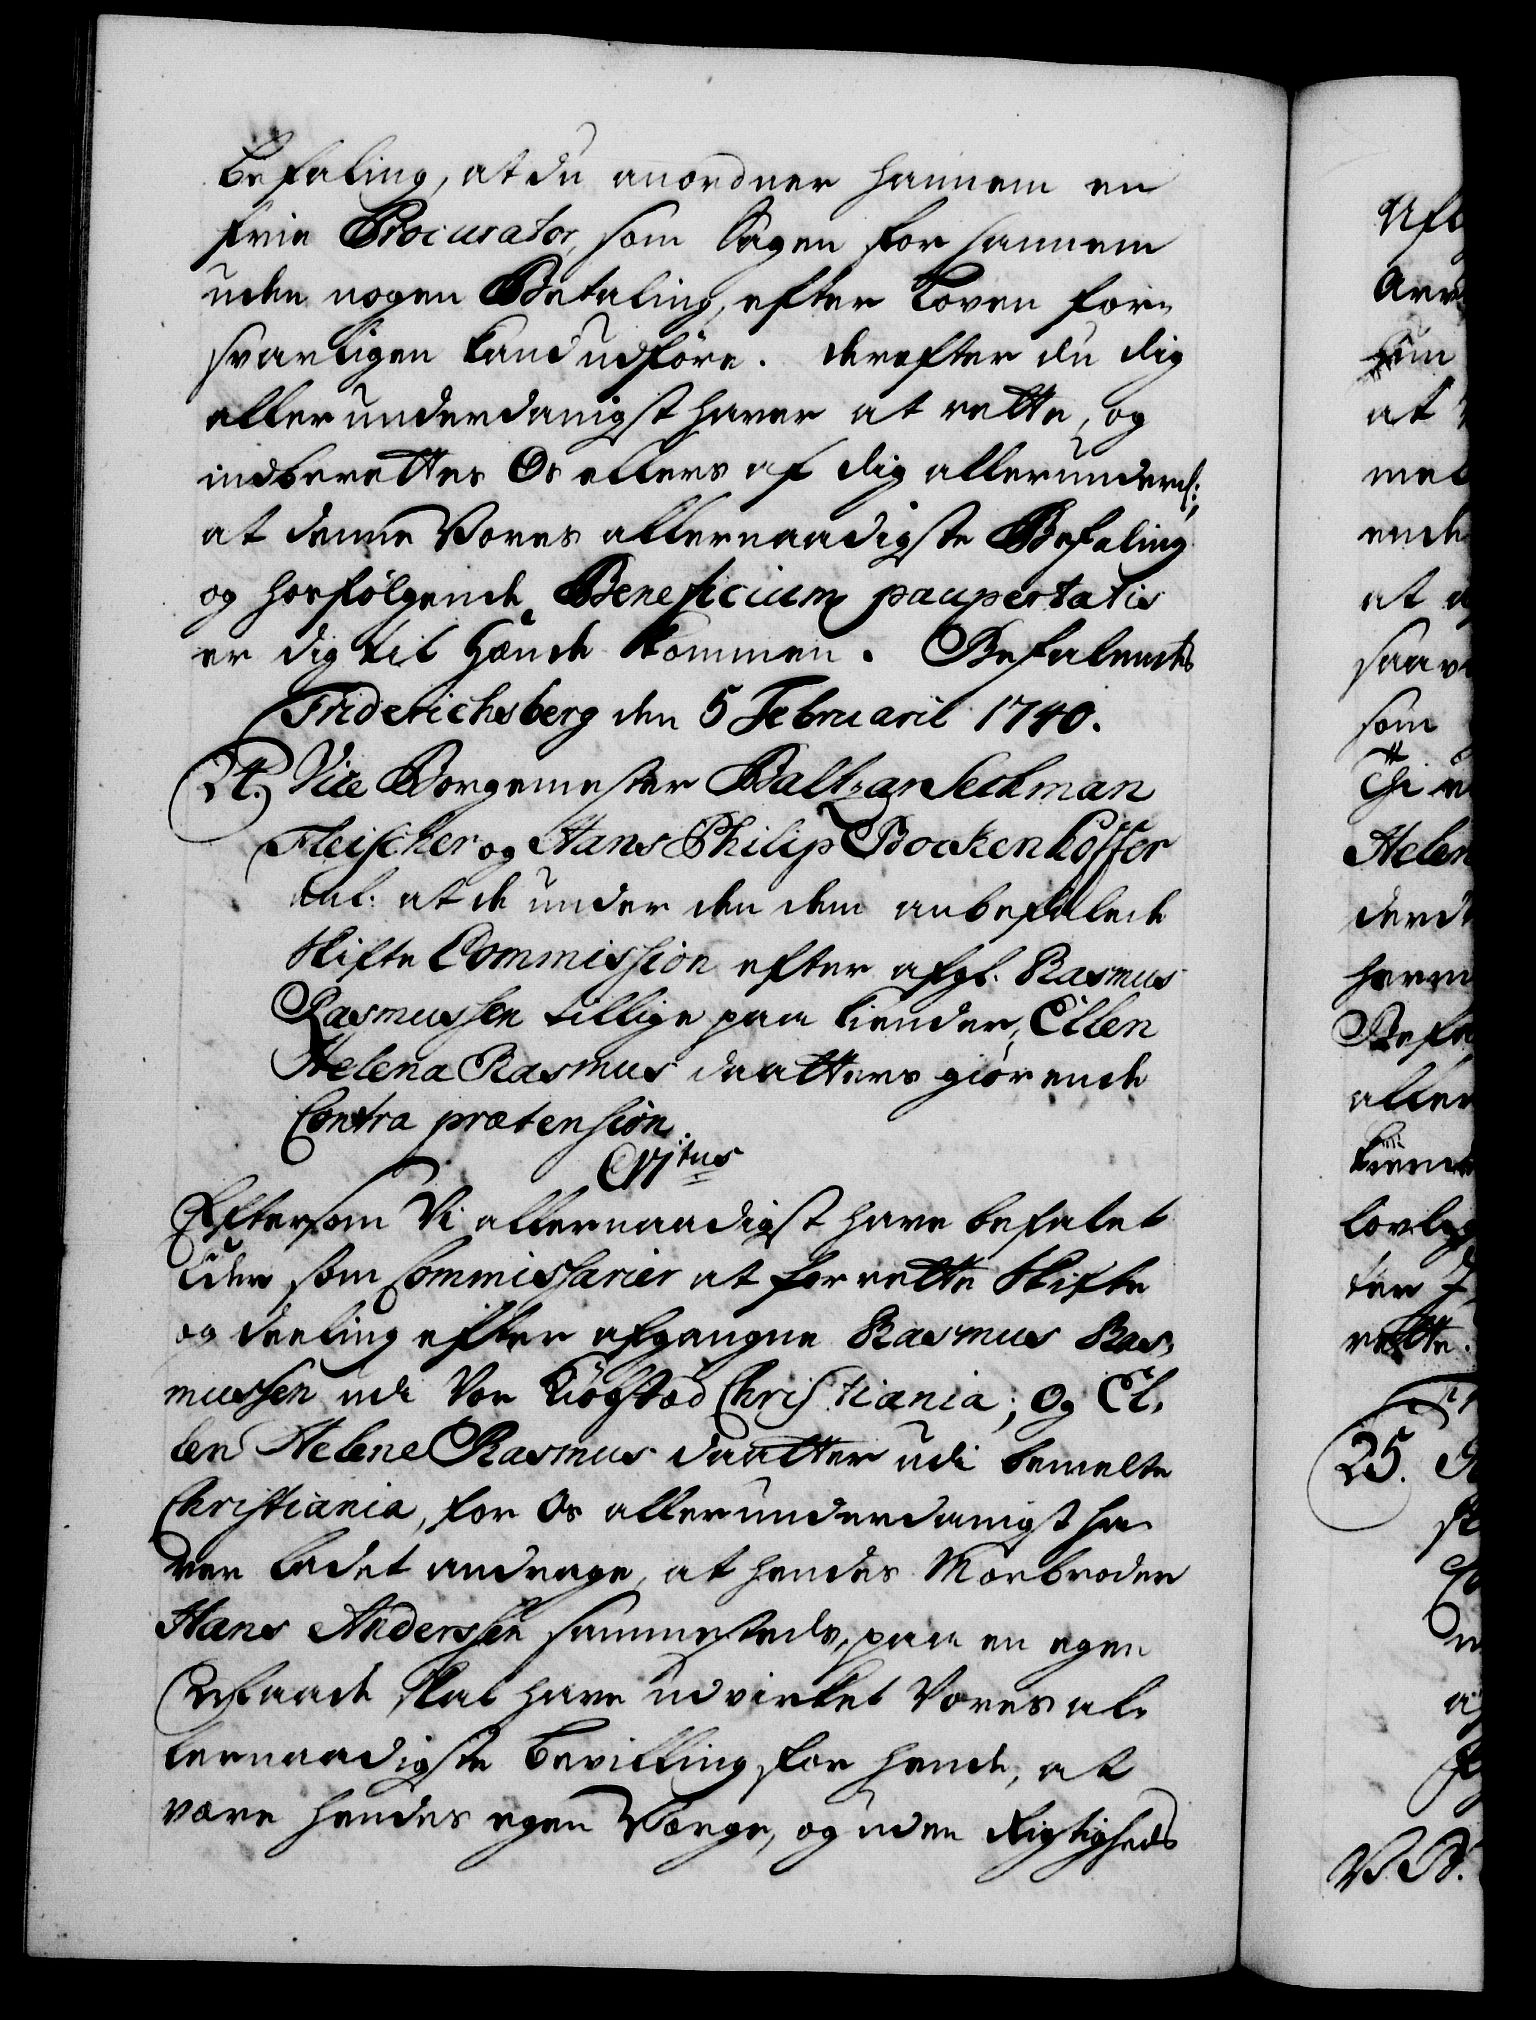 Befaling, at du anordner hannem en
frie Procurator, som Sagen for hannem
uden nogen Betaling, efter Loven for-
svarligen kand udføre. derefter du dig
allerunderdanigst haver at rette, og
indberettes Os ellers af dig allerunderd:
at denne Vores allernaadigste Befaling
og hosfølgende Beneficium paupertatis
er dig til Hænde kommen. Befalendes
Friderichsberg den 5 Februarii 1740.
24. Vice Borgemester Baltzar Seckman
Fleischer og Hans Philip Bockenhöffer
anl: at de under den dem anbefalede
Skifte Commission efter afgl. Rasmus
Rasmussen tillige paa kiender, Ellen
Helena Rasmus daatters giørende
Contra prætension.
C VItus
Eftersom Vi allernaadigst have befalet
Eder som Commissarier at forrette Skifte
og deeling efter afgangne Rasmus Ras-
mussen udi Vor Kiøbstæd Christiania; Og El-
len Helene Rasmus daatter udi bemelte
Christiania, for Os allerunderdanigst ha-
ver ladet andrage, at hendes Morbroder
Hans Anderssen sammesteds, paa en egen
Maade skal have udvirket Vores al-
lernaadigste bevilling for hende, at
være hendes egen Værge, og uden Rigtigheds
25.